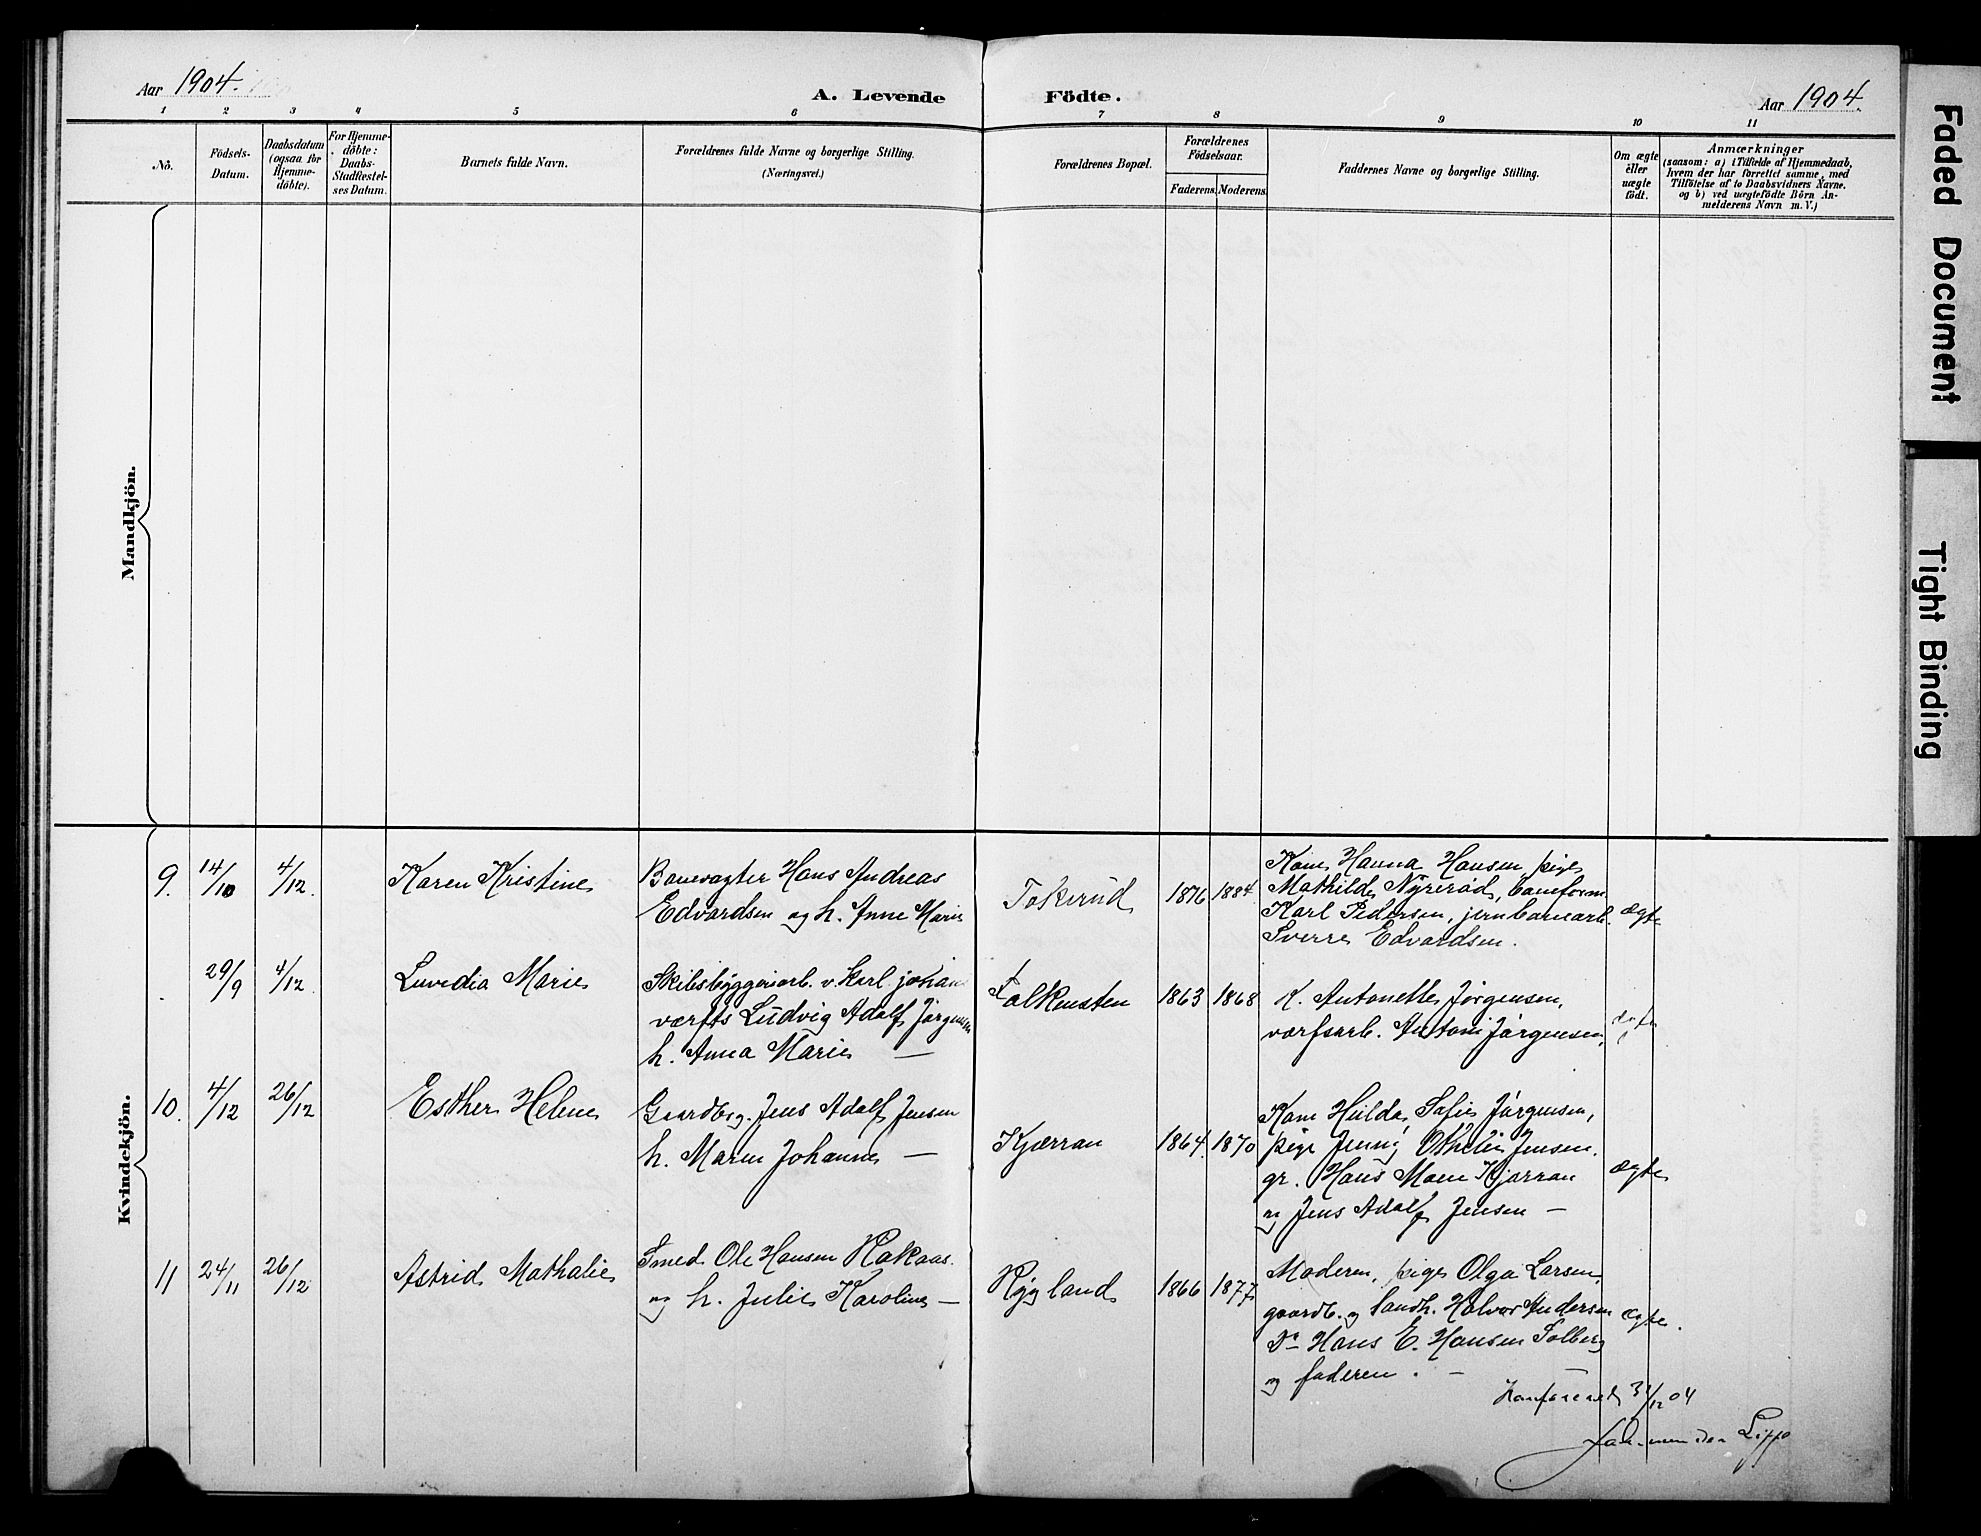 Aar 1904.
A. Levende Födte.
Aar 1904.
1 2 3 4 5 6 7 8 9 10 11
Nô.
Födsels-
Datum.
Daabsdatum
(ogsaa for
Hjemme-
döbte).
For Hjemme-
döbte:
Daabs-
Stadfæstel-
ses Datum.
Barnets fulde Navn.
Forældrenes fulde Navne og borgerlige Stilling.
(Næringsvei.)
Forældrenes Bopæl.
Forældrenes
Födselsaar.
Faderens. Moderens.
Faddernes Navne og borgerlige Stilling.
Om ægte
eller
uægte
födt.
Anmærkninger
(saasom: a) i Tilfælde af Hjemmedaab,
hvem der har forrettet samme, med
Tilföielse af to Daabsvidners Navne,
og b) ved uægtefödte Börn An-
melderens Navn m. V.)
Mandkjön.
Kvindekjön.
9. 14/10 4/12. Karen Kristine
Banevogter Hans Andreas
Edvardsen og h. Anne Marie
Tokerud 1876 1884
Kone Hanna Hansen, pige
Mathilde Nyrerød, baneform.
Karl Pedersen, jernbanearb.
Sverre Edvardsen.
ægte
29/9 4/12 Luvedia Marie
Skibsbyggeriarb. v. Karl johan
værfts Ludvig Adolf Jörgensen
h. Anna Marie —
Falkensten 1863 1868
K. Antonette Jörgensen,
værfsarb. Anton Jörgensen.
ægte
10. 4/12 26/12 Esther Helene
Gaardbrg. Jens Adolf Jensen
h. Maren Johanne —
Kjærran 1864. 1870
Kone Hulda Sofie Jörgensen,
pige Jenny Othelie Jensen.
gr. Hans Moen Kjærran
og Jens Adolf Jensen —
ægte
11 24/11 26/12 Astrid Mathalie
Smed Ole Hansen Rakaas.
og h. Julie Karoline —
Rygland 1866 1877
Moderen, pige Olga Larsen,
gaardb. og landh. Halvor Andersen
Do Hans E. Hansen Solberg
og faderen. —
ægte.
Konfereret 31/12 04
Lippe
Faded Document
Tight Binding